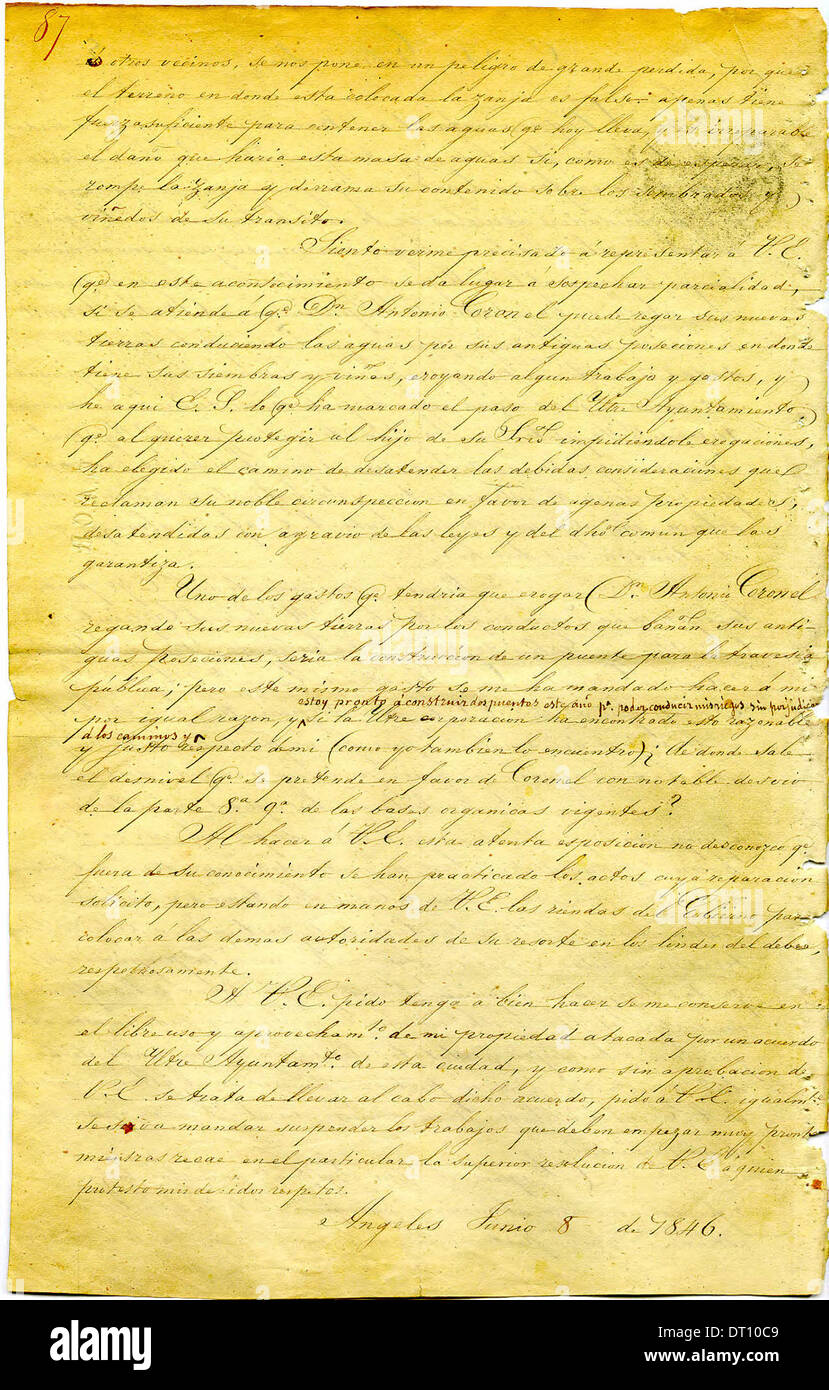 87
á otros vecinos, se nos pone en un peligro de grande perdida, por que
el terreno en donde esta colocada la zanja es falso: apenas tiene
fuerza suficiente para contener las aguas qe. hoy lleva, y es irreparable
el daño que haria esta masa de aguas si, como es de esperar, se
rompe la zanja y derrama su contenido sobre los sembrados y
viñedos de su transito.
Siento verme precisado á representar á V.E.
qe. en este acontecimiento se da lugar á sospechar parcialidad,
si se atiende á qe. Dn. Antonio Coronel puede regar sus nuevas
tierras conduciendo las aguas por sus antiguas poseciones en donde
tiene sus siembras y viñas, erogando algun trabajo y gastos, y
he aqui E. S. lo qe. ha marcado el paso del Yltre Ayuntamiento,
qe. al querer protegir al hijo de su impidiendole erogaciones,
ha elegido el camino de desatender las debidas consideraciones que
reclaman su noble circunspeccion en favor de agenas propiedades,
desatendidas con agravio de las leyes y del dho. comun que las
garantiza.
Uno de los gastos qe. tendria que erogar Dn. Antonio Coronel
regando sus nuevas tierras por los conductos que bañan sus anti-
guas poseciones, seria la construccion de un puente para la travesia
publica; pero este mismo gasto se me ha mandado hacer á mi
estoy pronto á construir dos puentes este año pa. poder conducir mis riegos sin perjudicar
por igual razon, y si la Yltre corporacion ha encontrado esto razonable
á los caminos y
y justo respecto de mi (como yo tambien lo encuentro) ¿de donde sale
el desnivel qe. se pretende en favor de Coronel con notable desvio
de la parte 8a. 9a. de las bases organicas vigentes?
Al hacer á V.E. esta atenta esposicion no desconozco qe.
fuera de su conocimiento se han practicado los actos cuya reparacion
solicito, pero estando en manos de V.E. las riendas del Gobierno para
colocar á las demas autoridades de su resorte en los lindes del deber,
respetuosamente.
A V.E. pido tenga á bien hacer se me conserve en
el libre uso y aprovechamto. de mi propiedad atacada por un acuerdo
del Yltre Ayuntamto. de esta ciudad, y como sin aprobacion de
V.E. se trata de llevar al cabo dicho acuerdo, pido á V.E. igualmte.
se sirva mandar suspender los trabajos que deben empezar muy pronto
mientras recae en el particular la superior resolucion de V.E. á quien
protesto mis debidos respetos.
Angeles Junio 8 de 1846.
alamy
a
alamy
Image ID: DT10C9
www.alamy.com